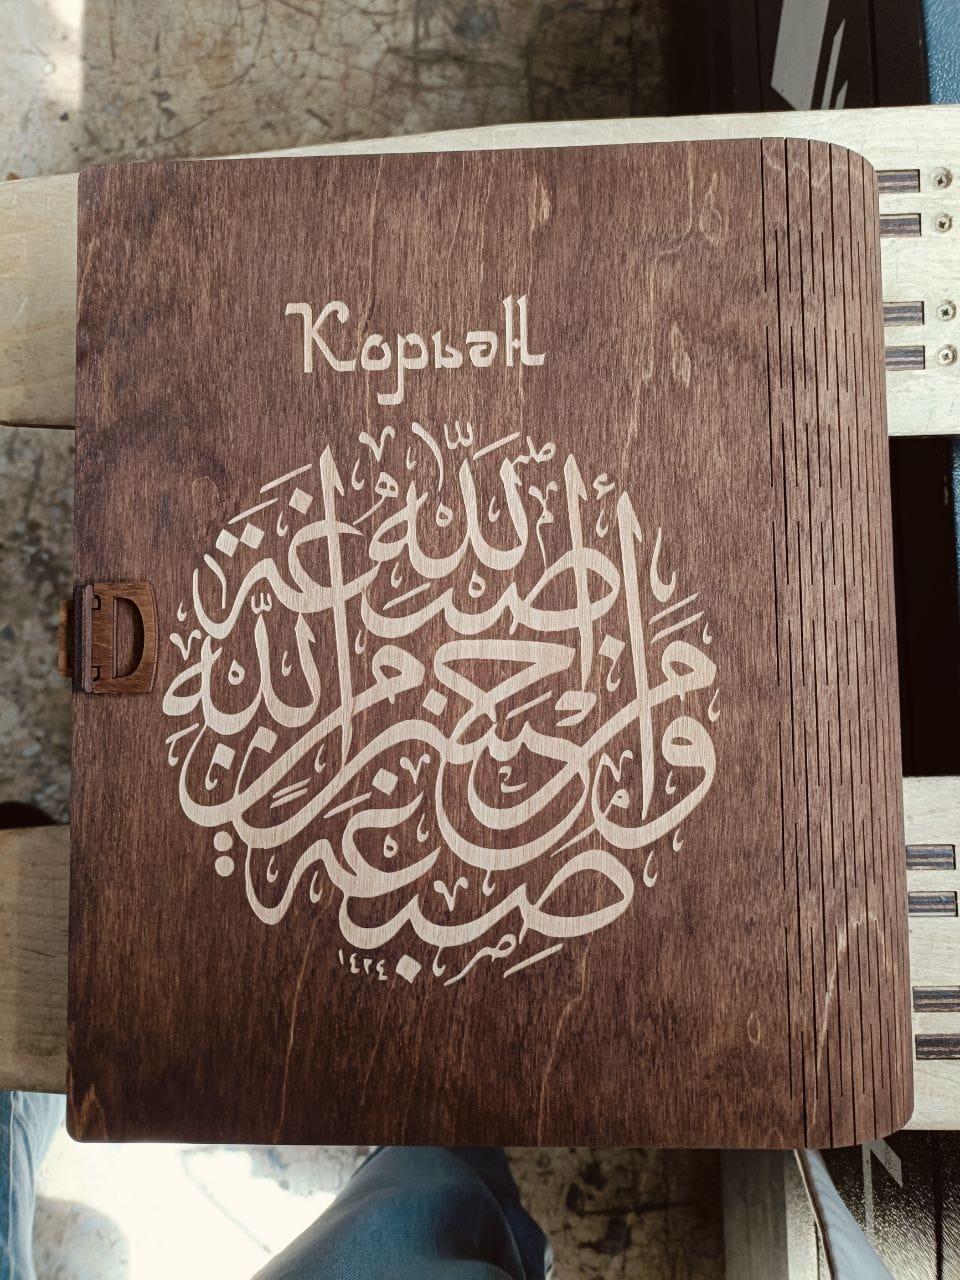 Корьән
صبغة الله ومن أحسن من الله صبغة
١٤٢٤